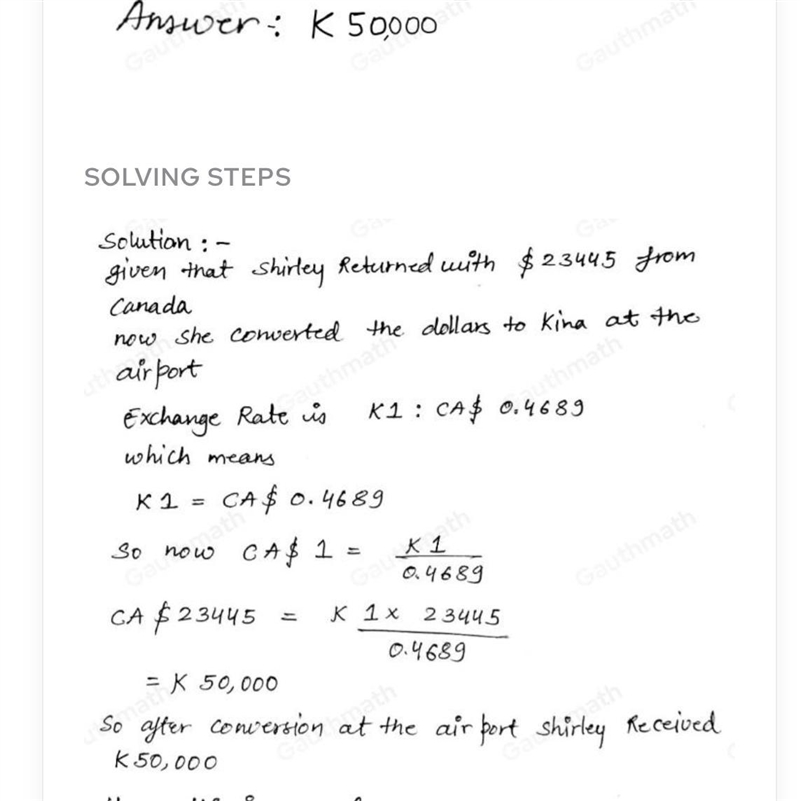 Answer:- K 50,000
SOLVING STEPS
Solution :-
given that Shirley Returned with $23445 from
Canada
now she converted the dollars to Kina at the
airport
Exchange Rate is K1 : CA$ 0.4689
which means
K1 = CA$ 0.4689
So now CA$ 1 = K1
0.4689
CA $23445 = K 1x 23445
0.4689
= K 50,000
So after conversion at the air port Shirley Received
K50,000